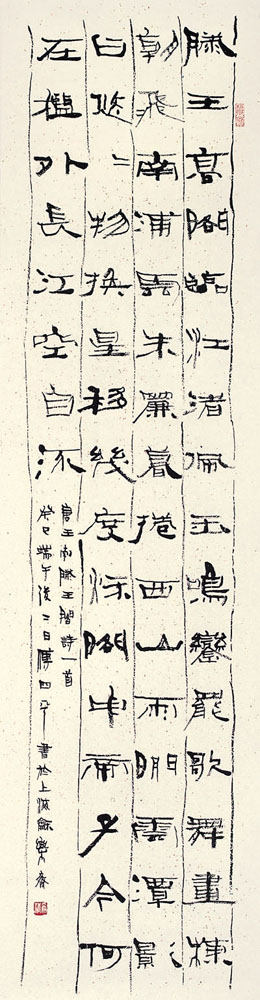 滕王高閣臨江渚佩玉鳴鸞罷歌舞畫棟
朝飛南浦雲朱簾暮捲西山雨閒雲潭影
日悠〻物換星移幾度秋閣中帝子今何
在檻外長江空自流
唐王勃滕王閣詩一首
癸巳端午後二日四平書於上海齋